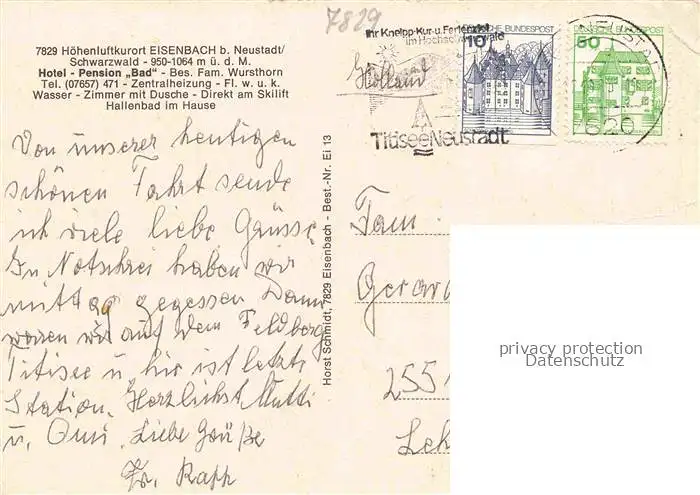 7829
7829 Höhenluftkurort EISENBACH b. Neustadt/
Schwarzwald - 950-1064 m ü. d. M.
Hotel - Pension „Bad" - Bes. Fam. Wursthorn
Tel. (07657) 471 - Zentralheizung - Fl. w. u. k.
Wasser - Zimmer mit Dusche - Direkt am Skilift
Hallenbad im Hause
Ihr Kneipp-Kur-u. Ferienziel
im Hochschwarzwald
Titisee Neustadt
DEUTSCHE BUNDESPOST
10
50
Holland
Von unserer heutigen
schönen Fahrt sende
ich viele liebe Grüsse
In Notschrei haben wir
mittag gegessen Dann
waren wir auf dem Feldberg
Titisee u. hier ist letzte
Station. Herzlichst Mutti
u. Omi. Liebe Grüße
Fr. Rapp
Horst Schmidt, 7829 Eisenbach - Best.-Nr. Ei 13
Fam.
Gerar
255
Leh
privacy protection
Datenschutz